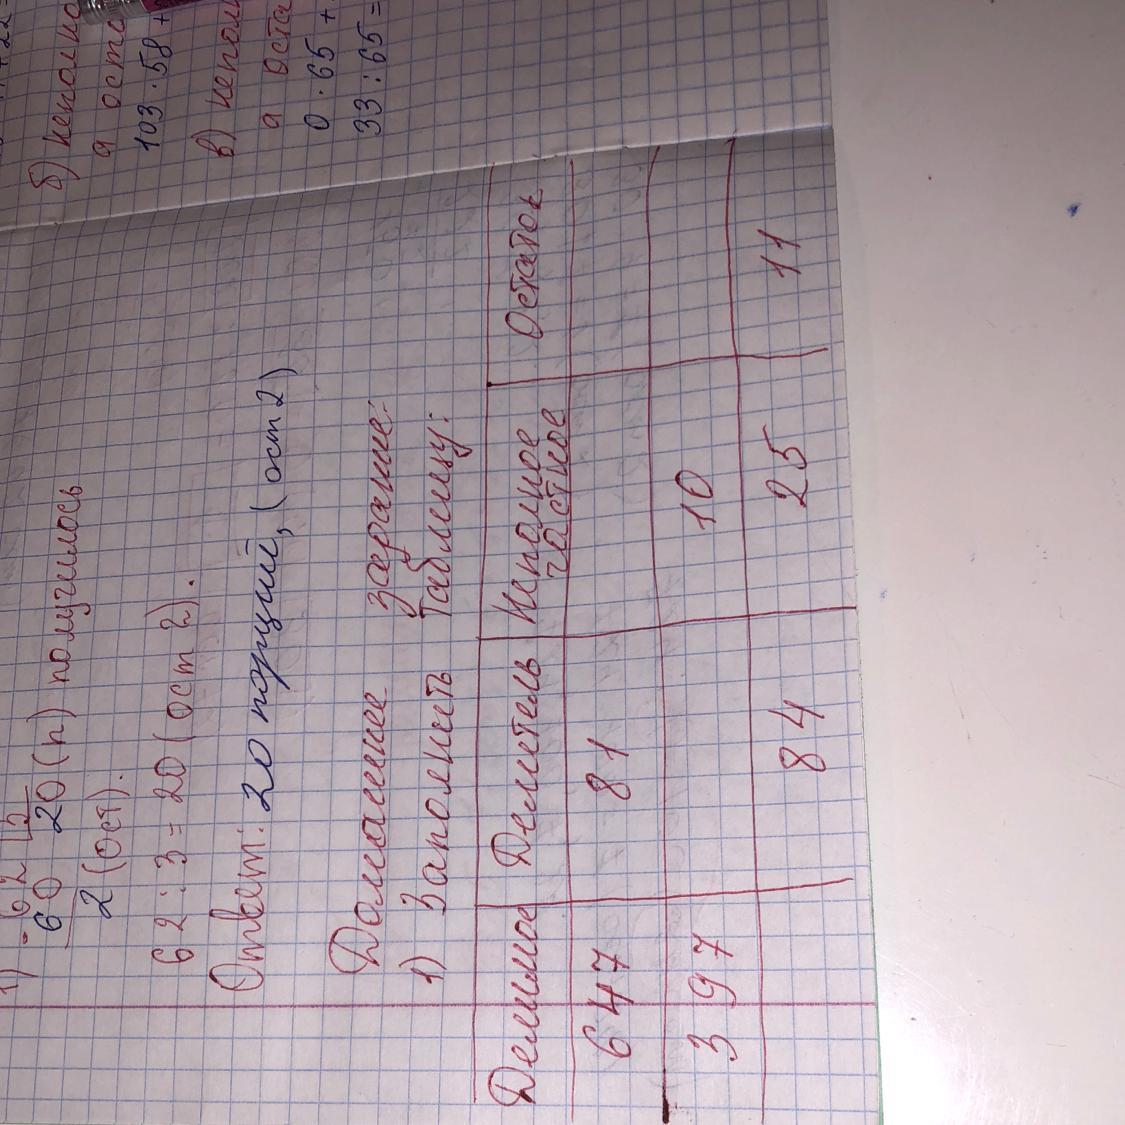 б) неполно
а оста
103·58+
в) непол
а оста
0·65+
33:65=
1) 62
60 20(п) получилось
2 (ост).
62:3=20(ост 2).
Ответ: 20 порций, (ост 2)
Домашнее задание:
1) Заполнить таблицу:
Делимое Делитель Неполное частное Остаток
647 81
397 10
84 25 11